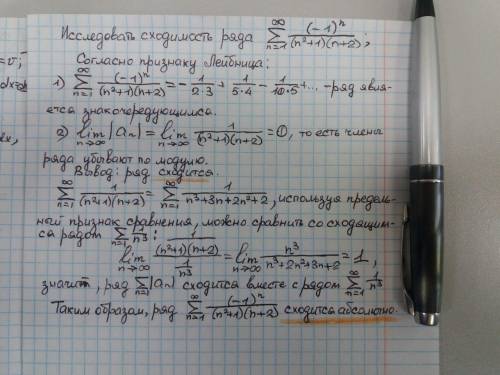 Исследовать сходимость ряда ∑_{n=1}^{∞} (-1)^n/((n²+1)(n+2));
Согласно признаку Лейбница:
1) ∑_{n=1}^{∞} (-1)^n/((n²+1)(n+2)) = -1/(2·3) + 1/(5·4) - 1/(10·5) +... - ряд явля-
ется знакочередующимся.
2) lim_{n→∞} |a_n| = lim_{n→∞} 1/((n²+1)(n+2)) = 0, то есть члены
ряда убывают по модулю.
Вывод: ряд сходится.
∑_{n=1}^{∞} 1/((n²+1)(n+2)) = ∑_{n=1}^{∞} 1/(n³+3n+2n²+2), используя предель-
ный признак сравнения, можно сравнить со сходящим-
ся рядом ∑_{n=1}^{∞} 1/n³:
lim_{n→∞} (1/((n²+1)(n+2)))/(1/n³) = lim_{n→∞} n³/(n³+2n²+3n+2) = 1,
значит, ряд ∑_{n=1}^{∞} |a_n| сходится вместе с рядом ∑_{n=1}^{∞} 1/n³
Таким образом, ряд ∑_{n=1}^{∞} (-1)^n/((n²+1)(n+2)) сходится абсолютно.